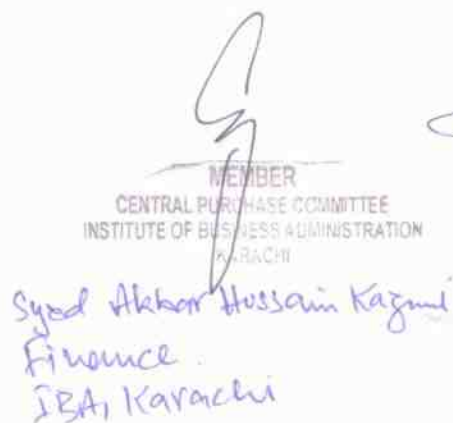 MEMBER
CENTRAL PURCHASE COMMITTEE
INSTITUTE OF BUSINESS ADMINISTRATION
KARACHI
Syed Akbar Hussain Kazmi
Finance.
IBA, Karachi